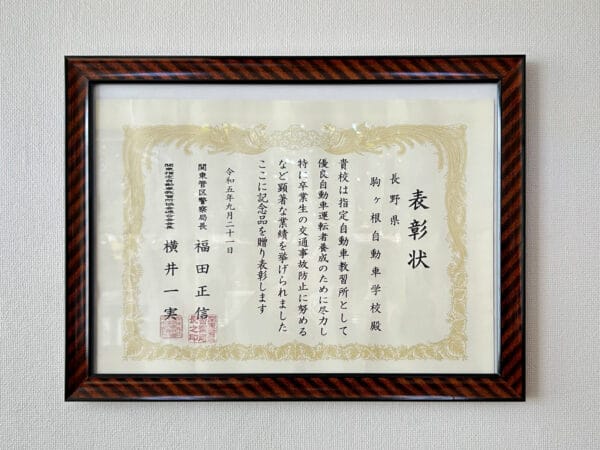 表彰状
長野県
駒ヶ根自動車学校殿
貴校は指定自動車教習所として
優良自動車運転者養成のために尽力し
特に卒業生の交通事故防止に努める
など顕著な業績を挙げられました
ここに記念品を贈り表彰します
令和五年九月二十一日
関東管区警察局長 福田正信
横井一実